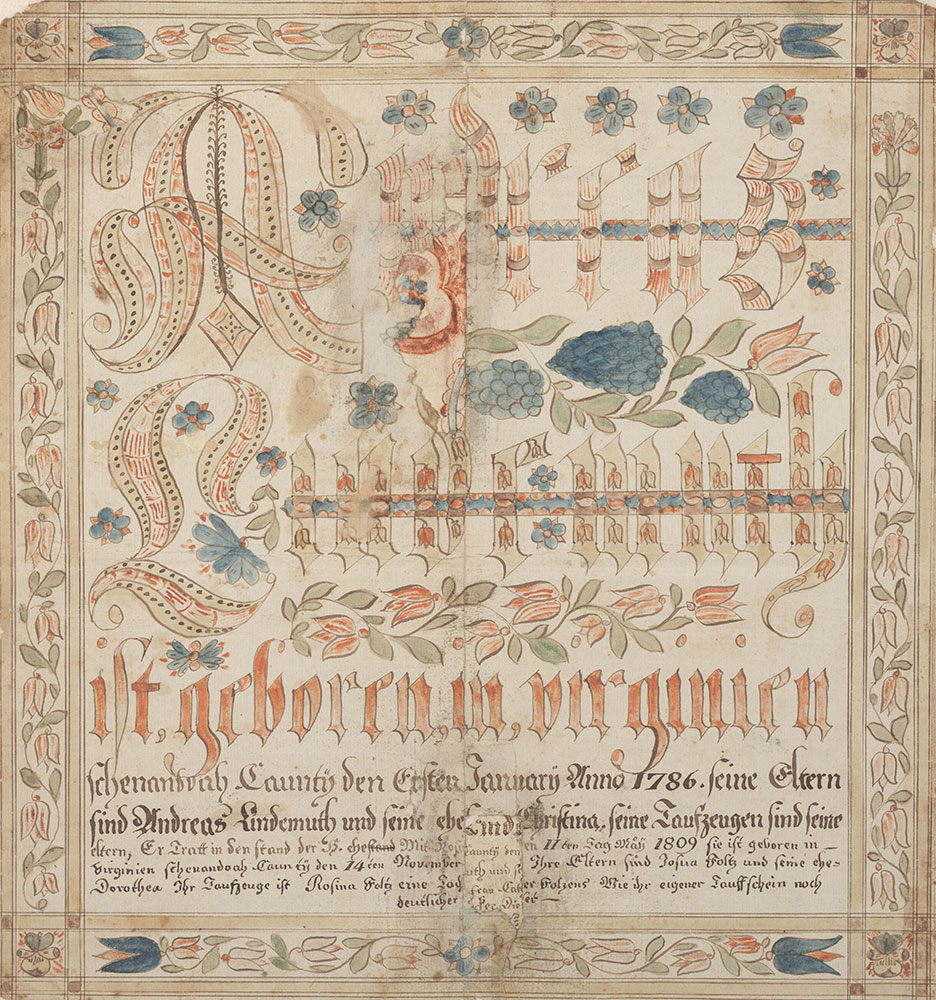 Andreas
Lindemuth
ist, geboren, in, virginien
schenandoah Caunty den Ersten January Anno 1786. seine Eltern
sind Andreas Lindemuth und seine ehe Christina, seine Taufzeugen sind seine
eltern, Er Tratt in den stand der H. ehestand Mit 11ten Tag Mäy 1809 sie ist geboren in
Virginien schenandoah Caunty den 14ten November Ihre Eltern sind Josua Foltz und seine ehe-
Dorothea Ihr Taufzeuge ist Rosina Foltz eine Foltzens Wie ihr eigener Tauffschein noch
deutlicher